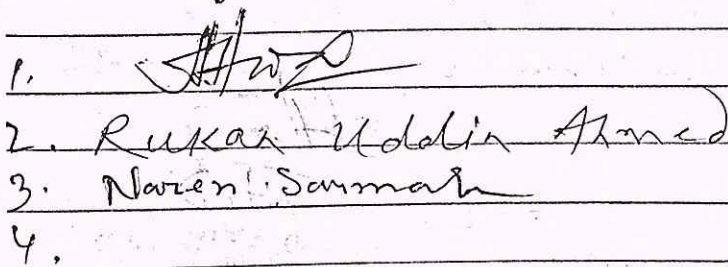 1.
2. Rukan Uddin Ahmed
3. Naren Sarmah
4.